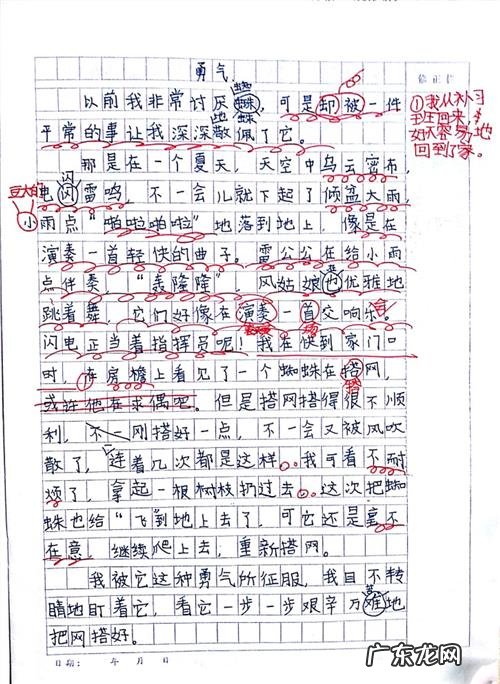 勇气
修正栏
以前我非常讨厌蜘蛛，可是却被一件
平常的事让我深深敬佩了它。
那是在一个夏天，天空中乌云密布，
电闪雷鸣，不一会儿就下起了倾盆大雨，
豆大的
小雨点“啪啦啪啦”地落到地上，像是在
演奏一首轻快的曲子。雷公公在给小雨
点伴奏，“轰隆隆”，风姑娘优雅地
跳着舞，它们好像在演奏一首交响乐，
闪电正当着指挥员呢！我在快到家门口
时，在房檐上看见了一个蜘蛛在搭网，
或许他在求偶吧。但是搭网搭得很不顺
利，不一刚搭好一点，不一会又被风吹
散了，连着几次都是这样。我可看不耐
烦了，拿起一根树枝扔过去。这次把蜘
蛛也给“飞”到地上去了，可它还是毫不
在意，继续爬上去，重新搭网。
我被它这种勇气所征服，我目不转
睛地盯着它，看它一步一步艰辛万难地
把网搭好。
①我从补习
班回来，
好不容易地
回到了家。
日期： 年 月 日
广东龙网